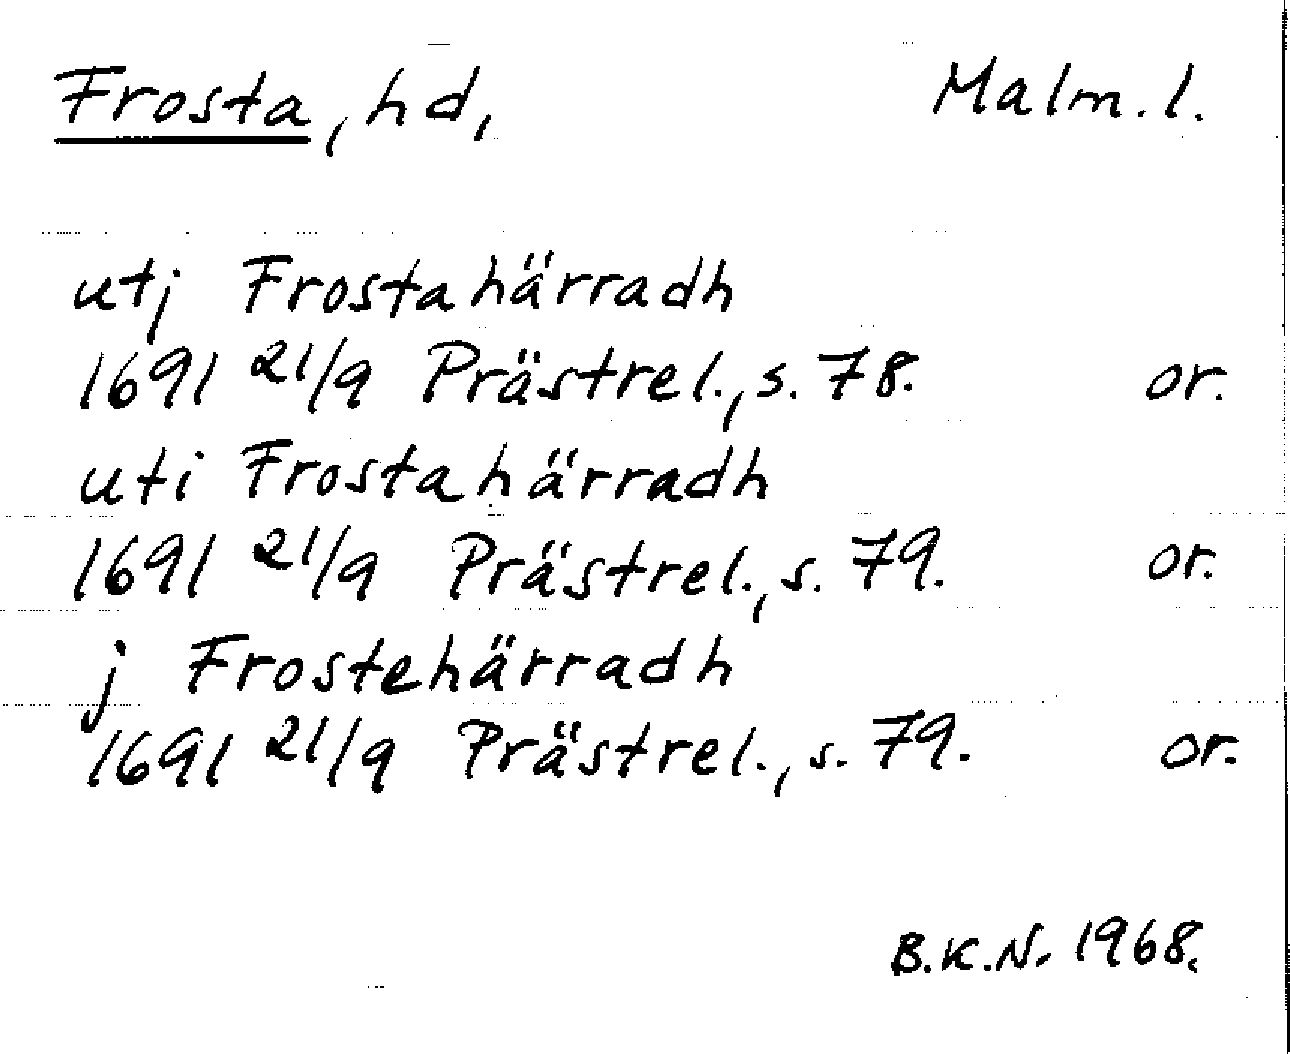 Frosta, hd, Malm. l.
utj Frostahärradh
1691 21/9 Prästrel., s. 78. or.
uti Frostahärradh
1691 21/9 Prästrel., s. 79. or.
j Frostehärradh
1691 21/9 Prästrel., s. 79. or.
B.K.N. 1968.